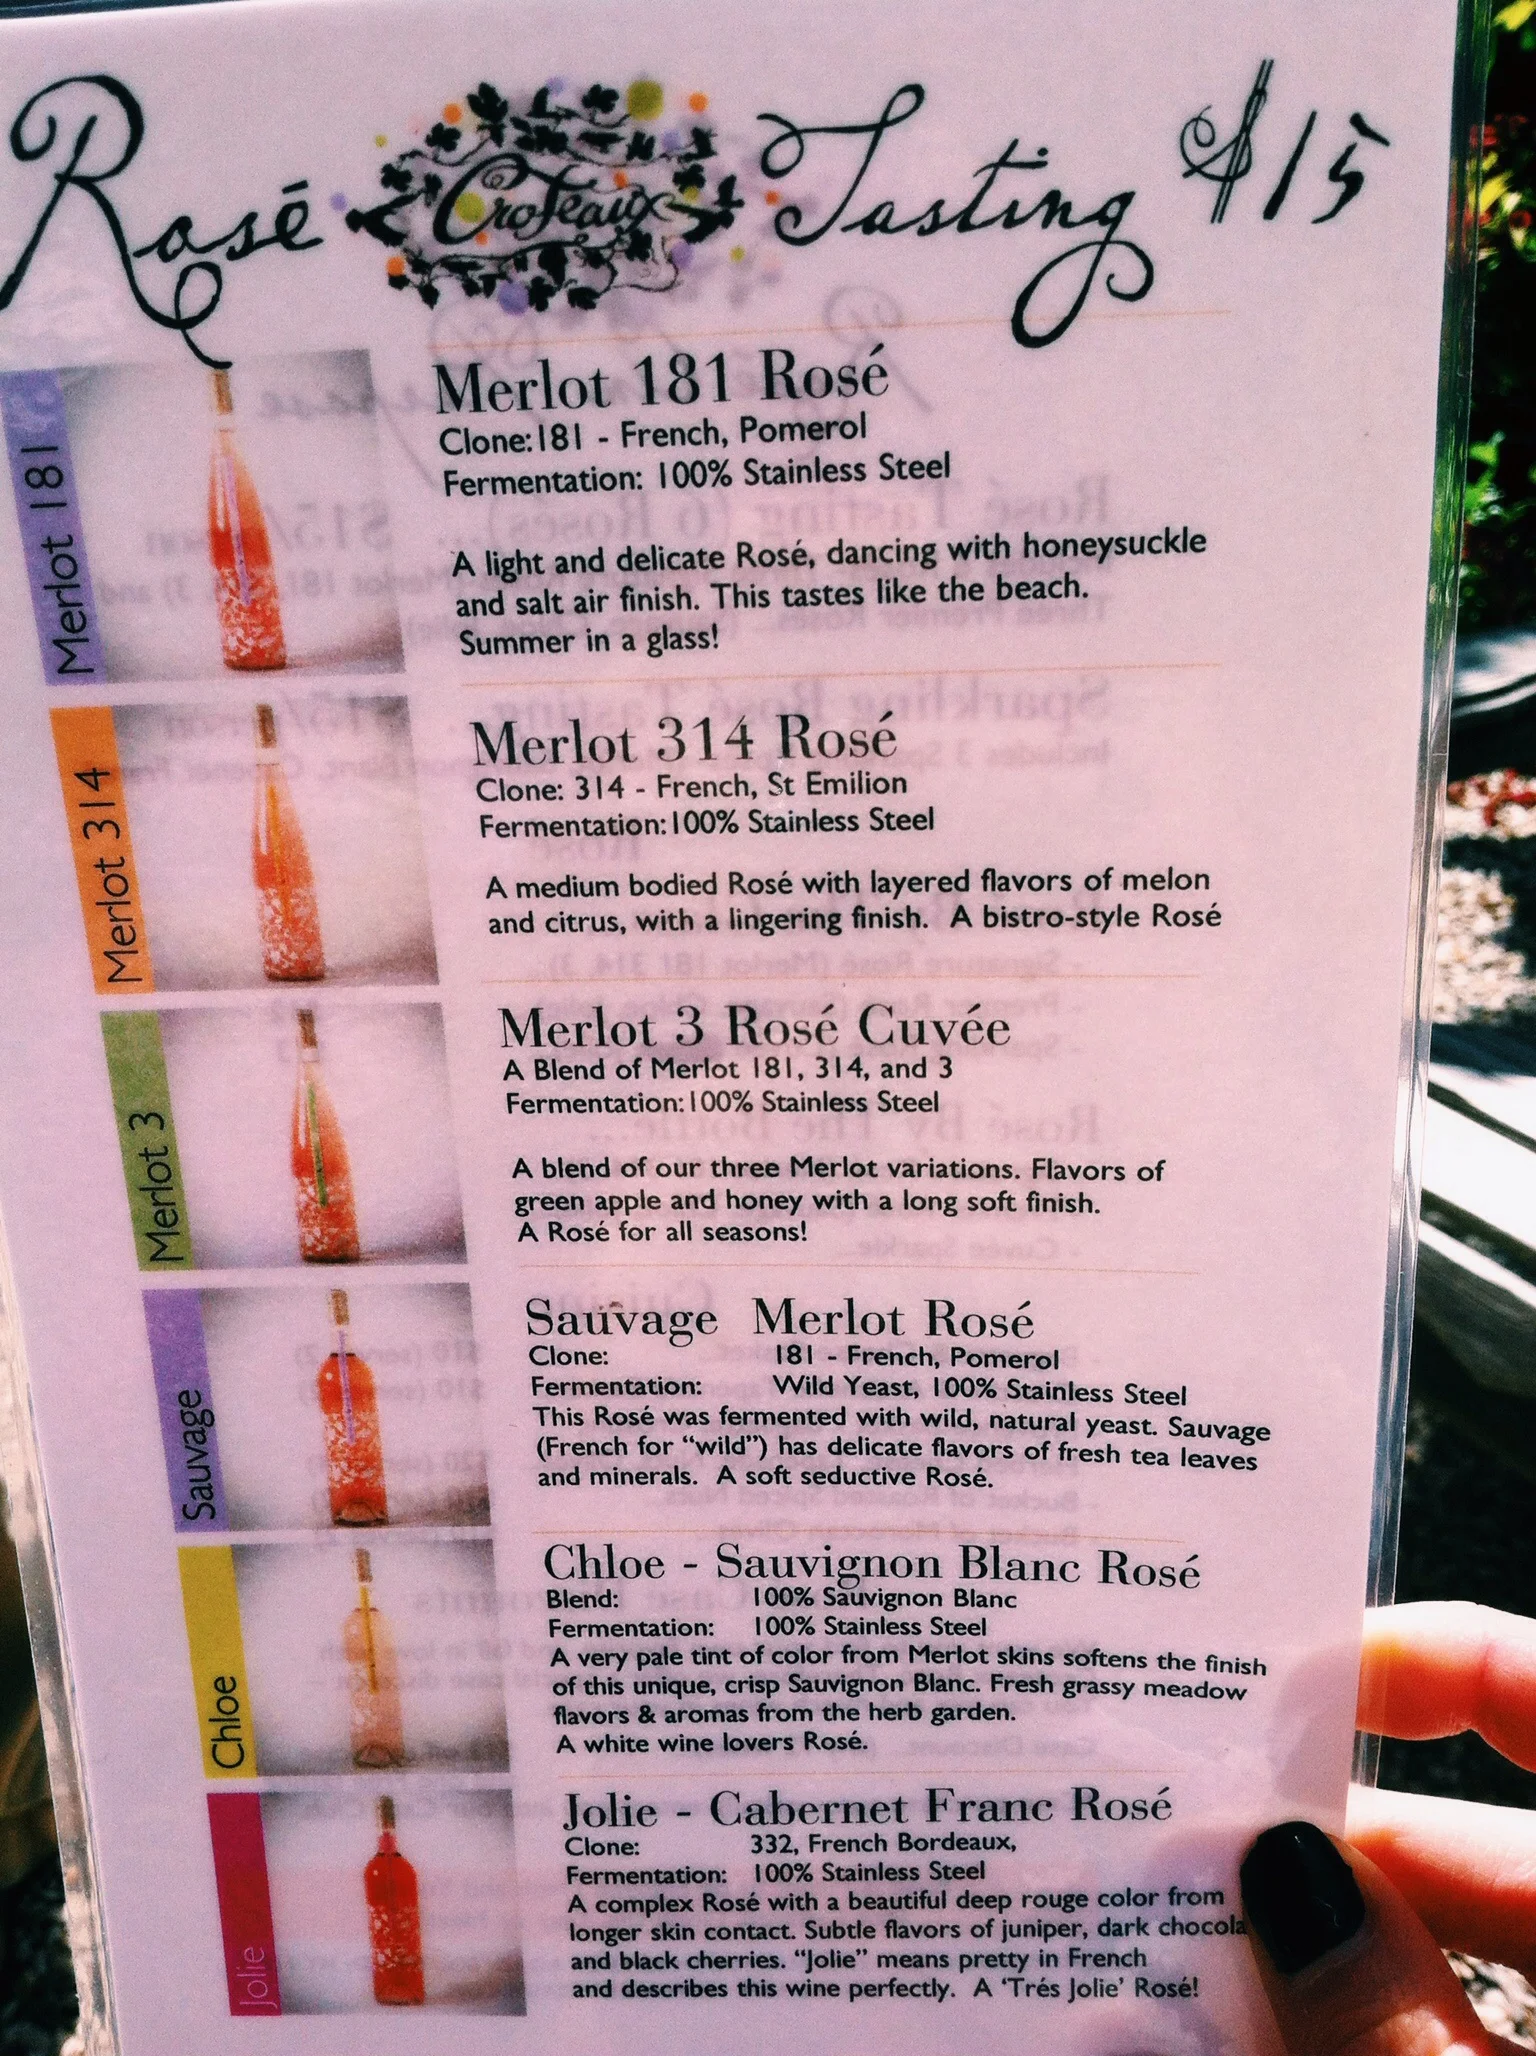 Rosé Croteaux Tasting $15
Merlot 181
Merlot 181 Rosé
Clone:181 - French, Pomerol
Fermentation: 100% Stainless Steel
A light and delicate Rosé, dancing with honeysuckle
and salt air finish. This tastes like the beach.
Summer in a glass!
Merlot 314
Merlot 314 Rosé
Clone: 314 - French, St Emilion
Fermentation:100% Stainless Steel
A medium bodied Rosé with layered flavors of melon
and citrus, with a lingering finish. A bistro-style Rosé
Merlot 3
Merlot 3 Rosé Cuvée
A Blend of Merlot 181, 314, and 3
Fermentation:100% Stainless Steel
A blend of our three Merlot variations. Flavors of
green apple and honey with a long soft finish.
A Rosé for all seasons!
Sauvage
Sauvage Merlot Rosé
Clone: 181 - French, Pomerol
Fermentation: Wild Yeast, 100% Stainless Steel
This Rosé was fermented with wild, natural yeast. Sauvage
(French for “wild”) has delicate flavors of fresh tea leaves
and minerals. A soft seductive Rosé.
Chloe
Chloe - Sauvignon Blanc Rosé
Blend: 100% Sauvignon Blanc
Fermentation: 100% Stainless Steel
A very pale tint of color from Merlot skins softens the finish
of this unique, crisp Sauvignon Blanc. Fresh grassy meadow
flavors & aromas from the herb garden.
A white wine lovers Rosé.
Jolie
Jolie - Cabernet Franc Rosé
Clone: 332, French Bordeaux,
Fermentation: 100% Stainless Steel
A complex Rosé with a beautiful deep rouge color from
longer skin contact. Subtle flavors of juniper, dark chocola
and black cherries. “Jolie” means pretty in French
and describes this wine perfectly. A ‘Trés Jolie’ Rosé!